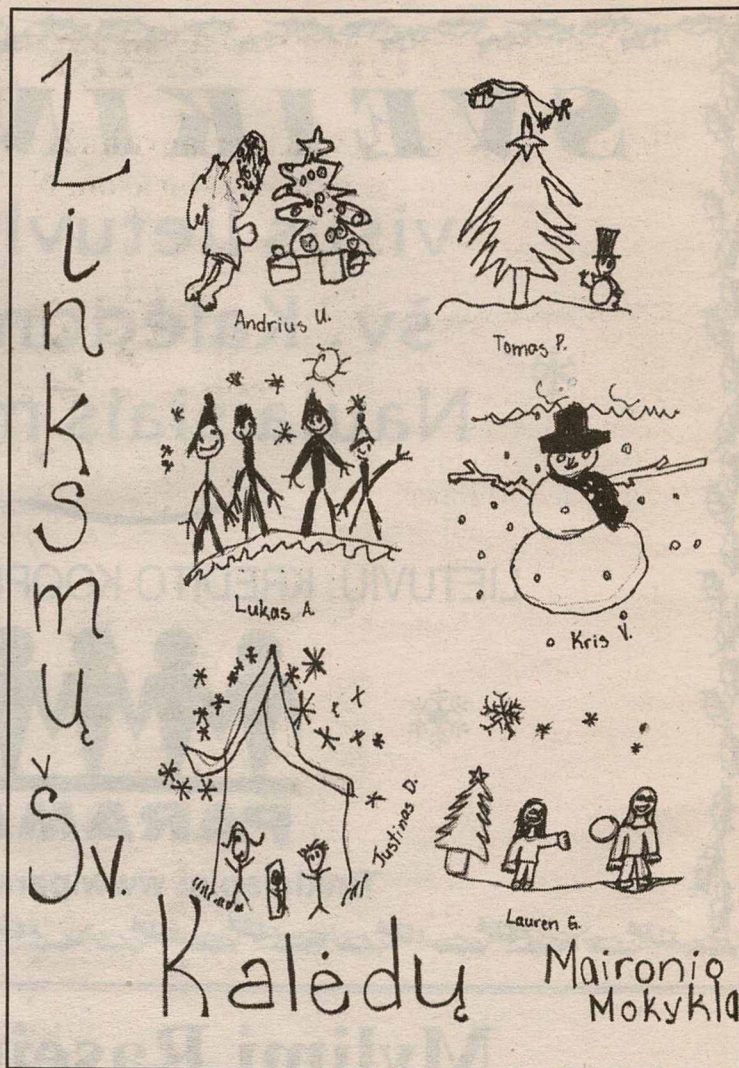 Linksmų
Šv.
Kalėdų
Andrius U.
Tomas P.
Lukas A.
Kris V.
Justinas D.
Lauren G.
Maironio
Mokykla